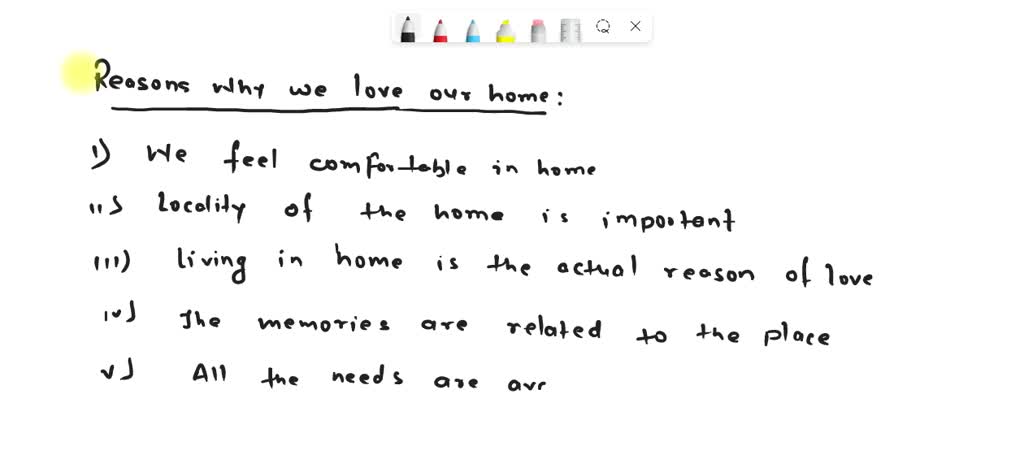 Reasons why we love our home:
i) We feel comfortable in home
ii) locality of the home is important
iii) living in home is the actual reason of love
iv) The memories are related to the place
v) All the needs are